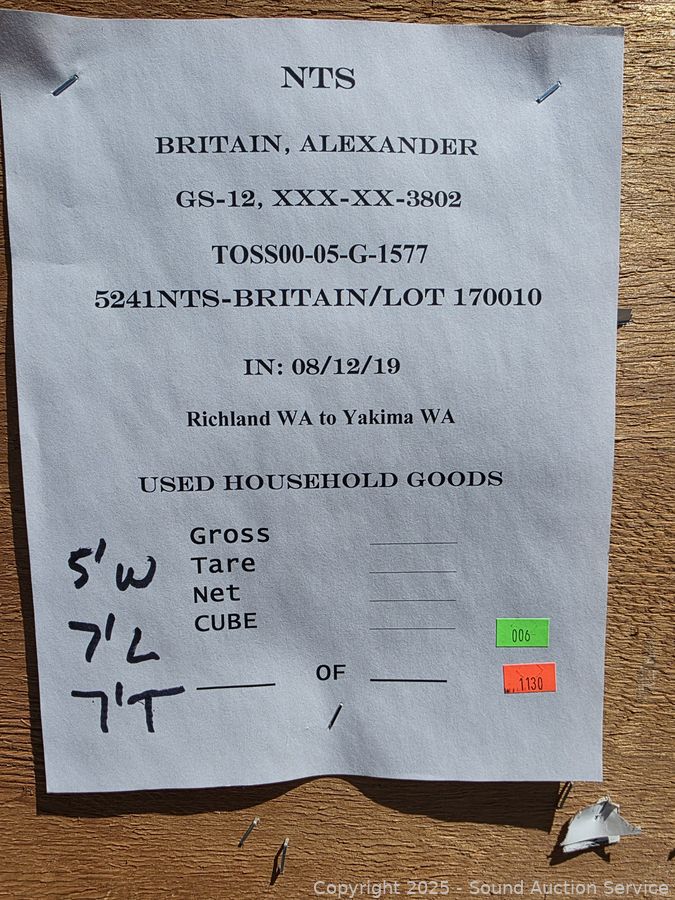 NTS
BRITAIN, ALEXANDER
GS-12, XXX-XX-3802
TOSS00-05-G-1577
5241NTS-BRITAIN/LOT 170010
IN: 08/12/19
Richland WA to Yakima WA
USED HOUSEHOLD GOODS
Gross
Tare
Net
CUBE
OF
5'W
7'L
7'T
006
1130
Copyright 2025 - Sound Auction Service